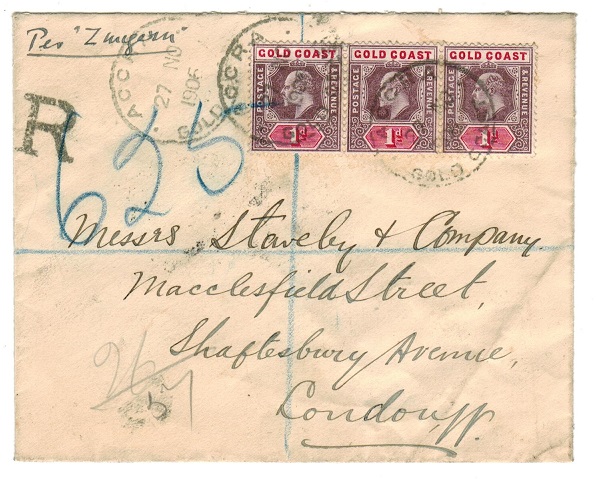 Per "Zungeru"
ACCRA
27 NO
1906
GOLD
CCRA
GOLD COAST GOLD COAST GOLD COAST
POSTAGE & REVENUE POSTAGE & REVENUE POSTAGE & REVENUE
1d 1d 1d
GOLD
R
625
Messrs Staveley & Company
Macclesfield Street,
Shaftesbury Avenue,
London